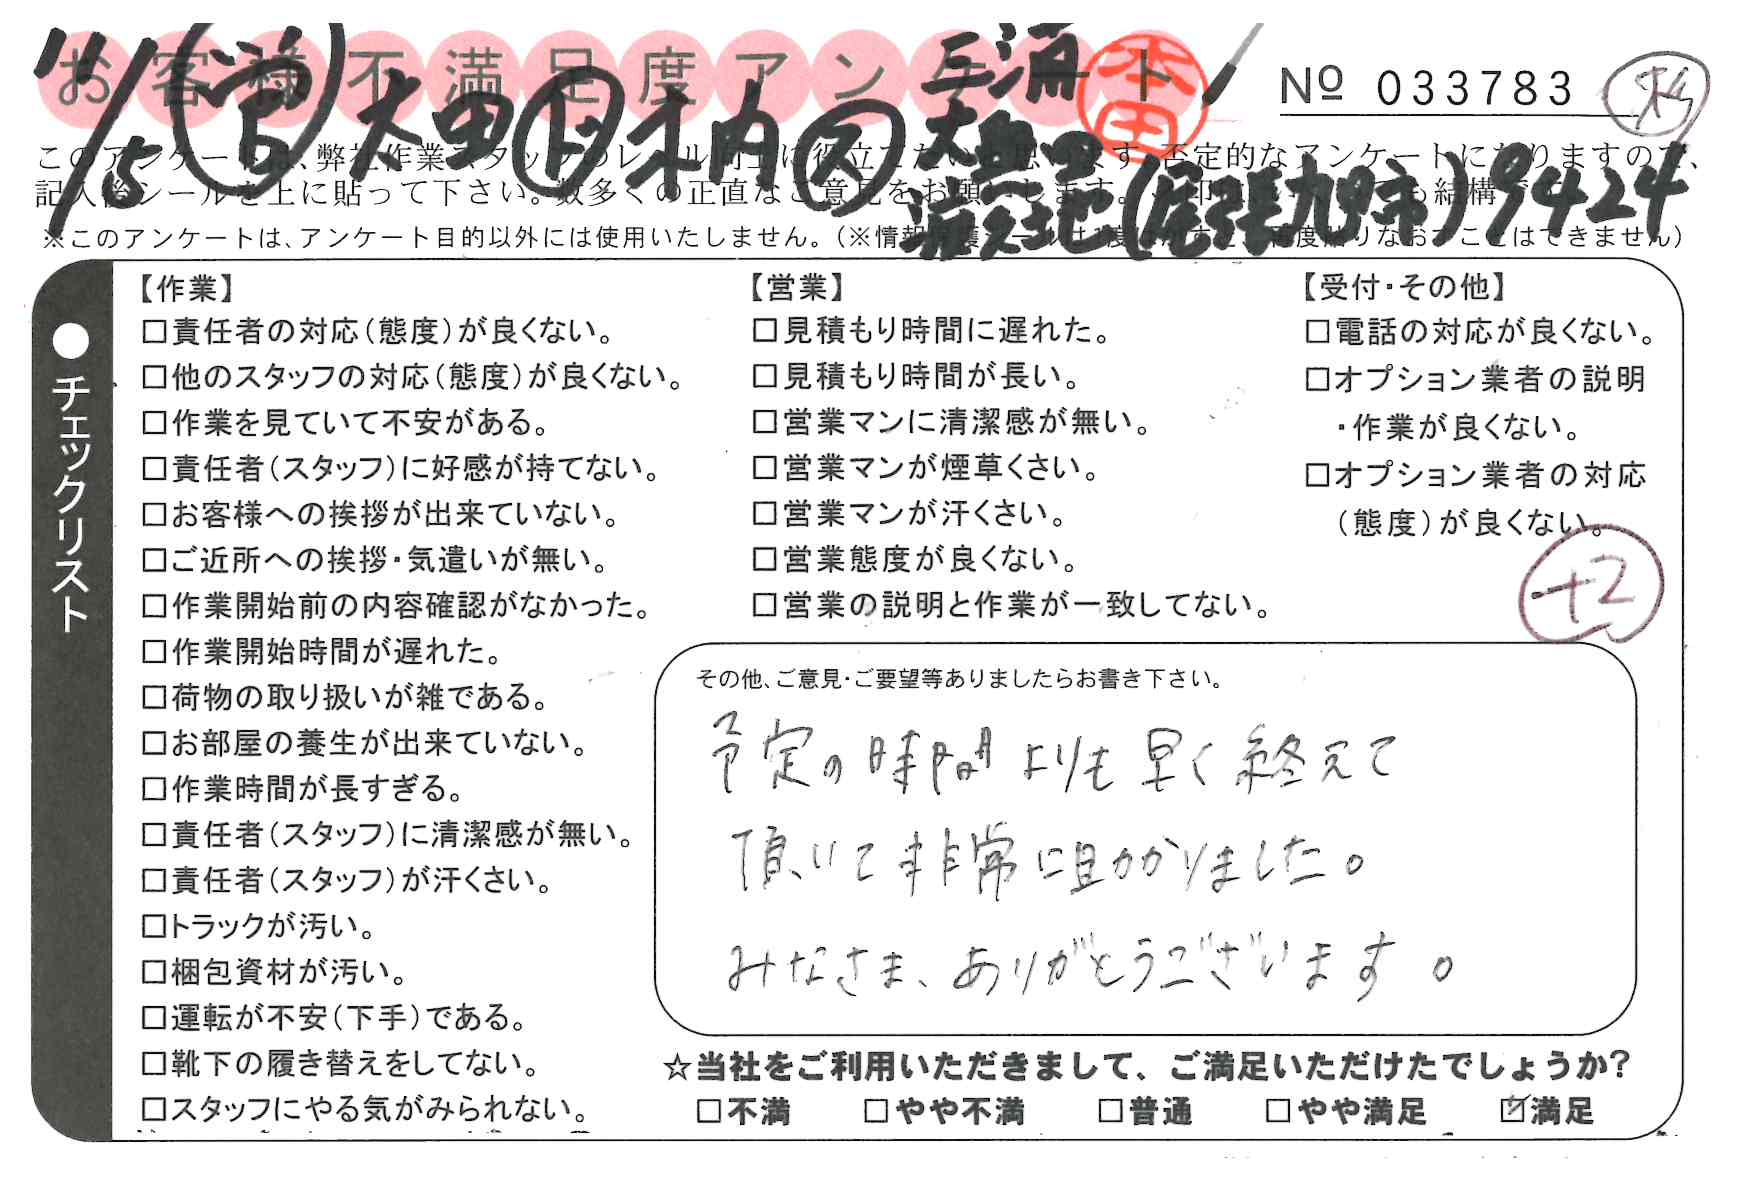 お客様不満足度アンケート
本田
No 033783
11/5 大 ト
三浦
(尾張旭市) 9424
このアンケートは、弊社作業スタッフのレベル向上に役立てたいと思います。否定的なアンケートになりますので、
記入後シールを上に貼って下さい。数多くの正直なご意見をお願いします。
※このアンケートは、アンケート目的以外には使用いたしません。(※情報保護シールは1度はがすと、再度貼りなおすことはできません)
●チェックリスト
【作業】
□責任者の対応(態度)が良くない。
□他のスタッフの対応(態度)が良くない。
□作業を見ていて不安がある。
□責任者(スタッフ)に好感が持てない。
□お客様への挨拶が出来ていない。
□ご近所への挨拶・気遣いが無い。
□作業開始前の内容確認がなかった。
□作業開始時間が遅れた。
□荷物の取り扱いが雑である。
□お部屋の養生が出来ていない。
□作業時間が長すぎる。
□責任者(スタッフ)に清潔感が無い。
□責任者(スタッフ)が汗くさい。
□トラックが汚い。
□梱包資材が汚い。
□運転が不安(下手)である。
□靴下の履き替えをしてない。
□スタッフにやる気がみられない。
【営業】
□見積もり時間に遅れた。
□見積もり時間が長い。
□営業マンに清潔感が無い。
□営業マンが煙草くさい。
□営業マンが汗くさい。
□営業態度が良くない。
□営業の説明と作業が一致してない。
【受付・その他】
□電話の対応が良くない。
□オプション業者の説明
・作業が良くない。
□オプション業者の対応
(態度)が良くない。
+2
その他、ご意見・ご要望等ありましたらお書き下さい。
予定の時間よりも早く終えて
頂いて非常に助かりました。
みなさま、ありがとうございます。
☆当社をご利用いただきまして、ご満足いただけたでしょうか?
□不満 □やや不満 □普通 □やや満足 ☑満足